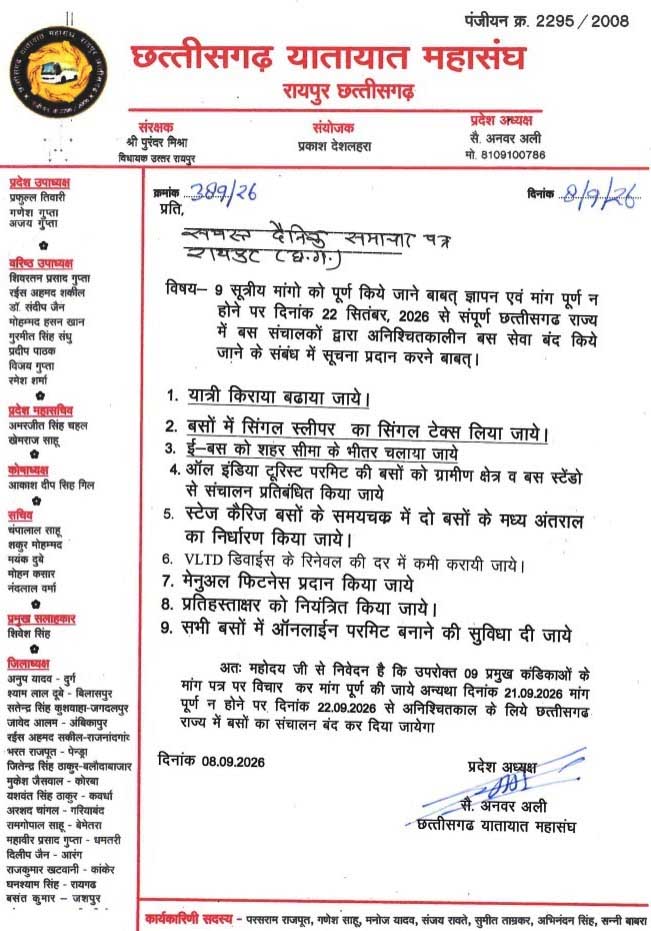 पंजीयन क्र. 2295 / 2008
छत्तीसगढ़ यातायात महासंघ
रायपुर छत्तीसगढ़
संरक्षक
श्री पुरंदर मिश्रा
विधायक उत्तर रायपुर
संयोजक
प्रकाश देशलहरा
प्रदेश अध्यक्ष
सै. अनवर अली
मो. 8109100786
प्रदेश उपाध्यक्ष
प्रफुल्ल तिवारी
गणेश गुप्ता
अजय गुप्ता
वरिष्ठ उपाध्यक्ष
शिवरतन प्रसाद गुप्ता
रईस अहमद शकील
डॉ. संदीप जैन
मोहम्मद हसन खान
गुरमीत सिंह संधु
प्रदीप पाठक
विजय गुप्ता
रमेश शर्मा
प्रदेश महासचिव
अमरजीत सिंह चहल
खेमराज साहू
कोषाध्यक्ष
आकाश दीप सिह गिल
सचिव
चंपालाल साहू
शकुर मोहम्मद
मयंक दुबे
मोहन कसार
नंदलाल वर्मा
प्रमुख सलाहकार
शिवेश सिंह
जिलाध्यक्ष
अनुप यादव - दुर्ग
श्याम लाल दूबे - बिलासपुर
सतेन्द्र सिंह कुशवाहा-जगदलपुर
जावेद आलम - अंबिकापुर
रईस अहमद सकील-राजनांदगांव
भरत राजपूत - पेन्ड्रा
जितेन्द्र सिंह ठाकुर-बलौदाबाजार
मुकेश जैसवाल - कोरबा
यशवंत सिंह ठाकुर - कवर्धा
अरशद चांगल - गरियाबंद
रामगोपाल साहू - बेमेतरा
महावीर प्रसाद गुप्ता - धमतरी
दिलीप जैन - आरंग
राजकुमार खटवानी - कांकेर
घनश्याम सिंह - रायगढ
बसंत कुमार – जशपुर
क्रमांक 389/26
दिनांक 8/9/26
प्रति,
समस्त दैनिक समाचार पत्र
रायपुर (छ.ग.)
विषय– 9 सूत्रीय मांगो को पूर्ण किये जाने बाबत् ज्ञापन एवं मांग पूर्ण न
होने पर दिनांक 22 सितंबर, 2026 से संपूर्ण छत्तीसगढ राज्य
में बस संचालकों द्वारा अनिश्चितकालीन बस सेवा बंद किये
जाने के संबंध में सूचना प्रदान करने बाबत्।
1. यात्री किराया बढाया जाये।
2. बसों में सिंगल स्लीपर का सिंगल टेक्स लिया जाये।
3. ई–बस को शहर सीमा के भीतर चलाया जाये
4. ऑल इंडिया टूरिस्ट परमिट की बसों को ग्रामीण क्षेत्र व बस स्टेंडो
से संचालन प्रतिबंधित किया जाये
5. स्टेज कैरिज बसों के समयचक में दो बसों के मध्य अंतराल
का निर्धारण किया जाये।
6. VLTD डिवाईस के रिनेवल की दर में कमी करायी जाये।
7. मेनुअल फिटनेस प्रदान किया जाये
8. प्रतिहस्ताक्षर को नियंत्रित किया जाये।
9. सभी बसों में ऑनलाईन परमिट बनाने की सुविधा दी जाये
अतः महोदय जी से निवेदन है कि उपरोक्त 09 प्रमुख कंडिकाओं के
मांग पत्र पर विचार कर मांग पूर्ण की जाये अन्यथा दिनांक 21.09.2026 मांग
पूर्ण न होने पर दिनांक 22.09.2026 से अनिश्चितकाल के लिये छत्तीसगढ
राज्य में बसों का संचालन बंद कर दिया जायेगा
दिनांक 08.09.2026
प्रदेश अध्यक्ष
सै. अनवर अली
छत्तीसगढ यातायात महासंघ
कार्यकारिणी सदस्य – परसराम राजपूत, गणेश साहू, मनोज यादव, संजय रावते, सुमीत ताम्रकर, अभिनंदन सिंह, सन्नी बाबरा